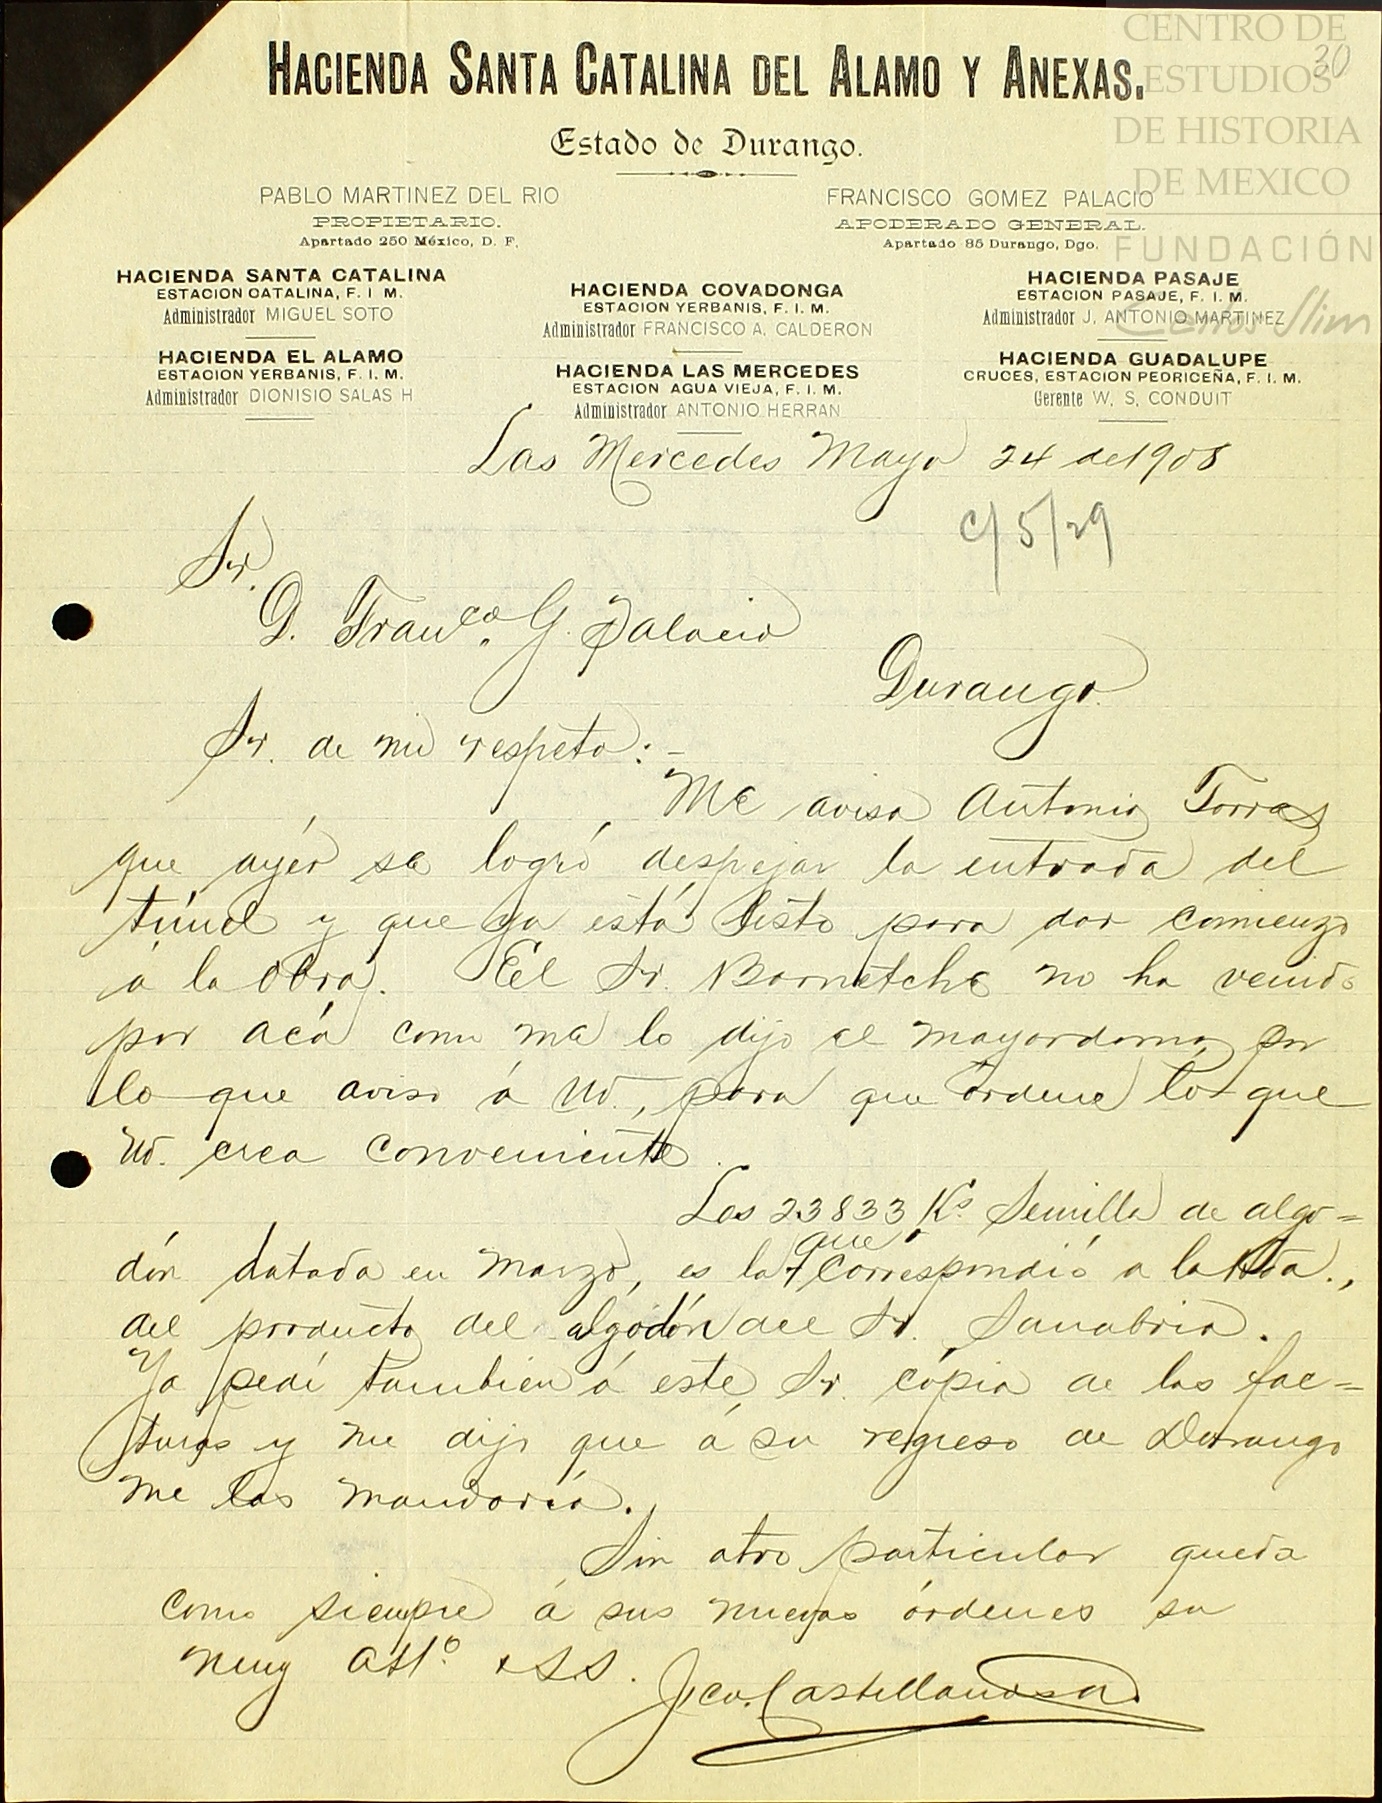 CENTRO DE
ESTUDIOS
DE HISTORIA
DE MEXICO
FUNDACIÓN
Carlos Slim
30
HACIENDA SANTA CATALINA DEL ALAMO Y ANEXAS.
Estado de Durango.
PABLO MARTINEZ DEL RIO
PROPIETARIO.
Apartado 250 México, D. F.
FRANCISCO GOMEZ PALACIO
APODERADO GENERAL.
Apartado 85 Durango, Dgo.
HACIENDA SANTA CATALINA
ESTACION CATALINA, F. I. M.
Administrador MIGUEL SOTO
HACIENDA COVADONGA
ESTACION YERBANIS, F. I. M.
Administrador FRANCISCO A. CALDERON
HACIENDA PASAJE
ESTACION PASAJE, F. I. M.
Administrador J. ANTONIO MARTINEZ
HACIENDA EL ALAMO
ESTACION YERBANIS, F. I. M.
Administrador DIONISIO SALAS H
HACIENDA LAS MERCEDES
ESTACION AGUA VIEJA, F. I. M.
Administrador ANTONIO HERRAN
HACIENDA GUADALUPE
CRUCES, ESTACION PEDRICEÑA, F. I. M.
Gerente W. S. CONDUIT
Las Mercedes Mayo 24 de 1908
c/ 5/29
Sr.
D. Franco. G. Palacio
Durango.
Sr. de mi respeto:-
Me avisa Antonio Torres
que ayér se logró despejar la entrada del
túnel y que ya está listo para dar comienzo
á la obra. El Sr. Barnetche no ha venido
por acá como me lo dijo el mayordomo por
lo que aviso á Ud., para que órdene lo que
Ud. crea conveniente.
Los 23833 Ks. Semilla de algo=
dón datada en Marzo, es la que correspondió a la Hda.,
del producto del algodón del Sr. Sanabria.
Ya pedí tambien á este Sr. cópia de las fac=
turas y me dijo que á su regreso de Durango
me las mandaría.
Sin otro particular queda
como siempre á sus nuevas órdenes su
muy atto. y SS.
Fco. Castellanos